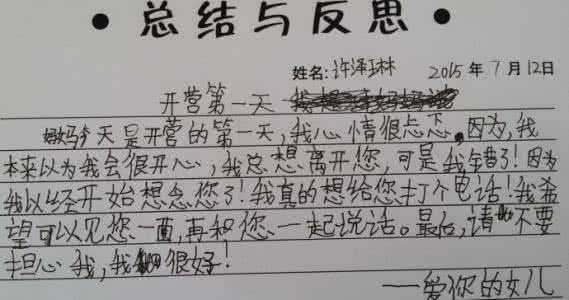 • 总结与反思 •
姓名: 许泽琳 2015年7月12日
开营第一天
天是开营的第一天,我心情很忐忑。因为,我
本来以为我会很开心,我总想离开您,可是我错了!因为
我以经开始想念您了!我真的想给您打个电话!我希
望可以见您一面,再和您一起说话。最后,请不要
担心我,我很好!
——爱你的女儿